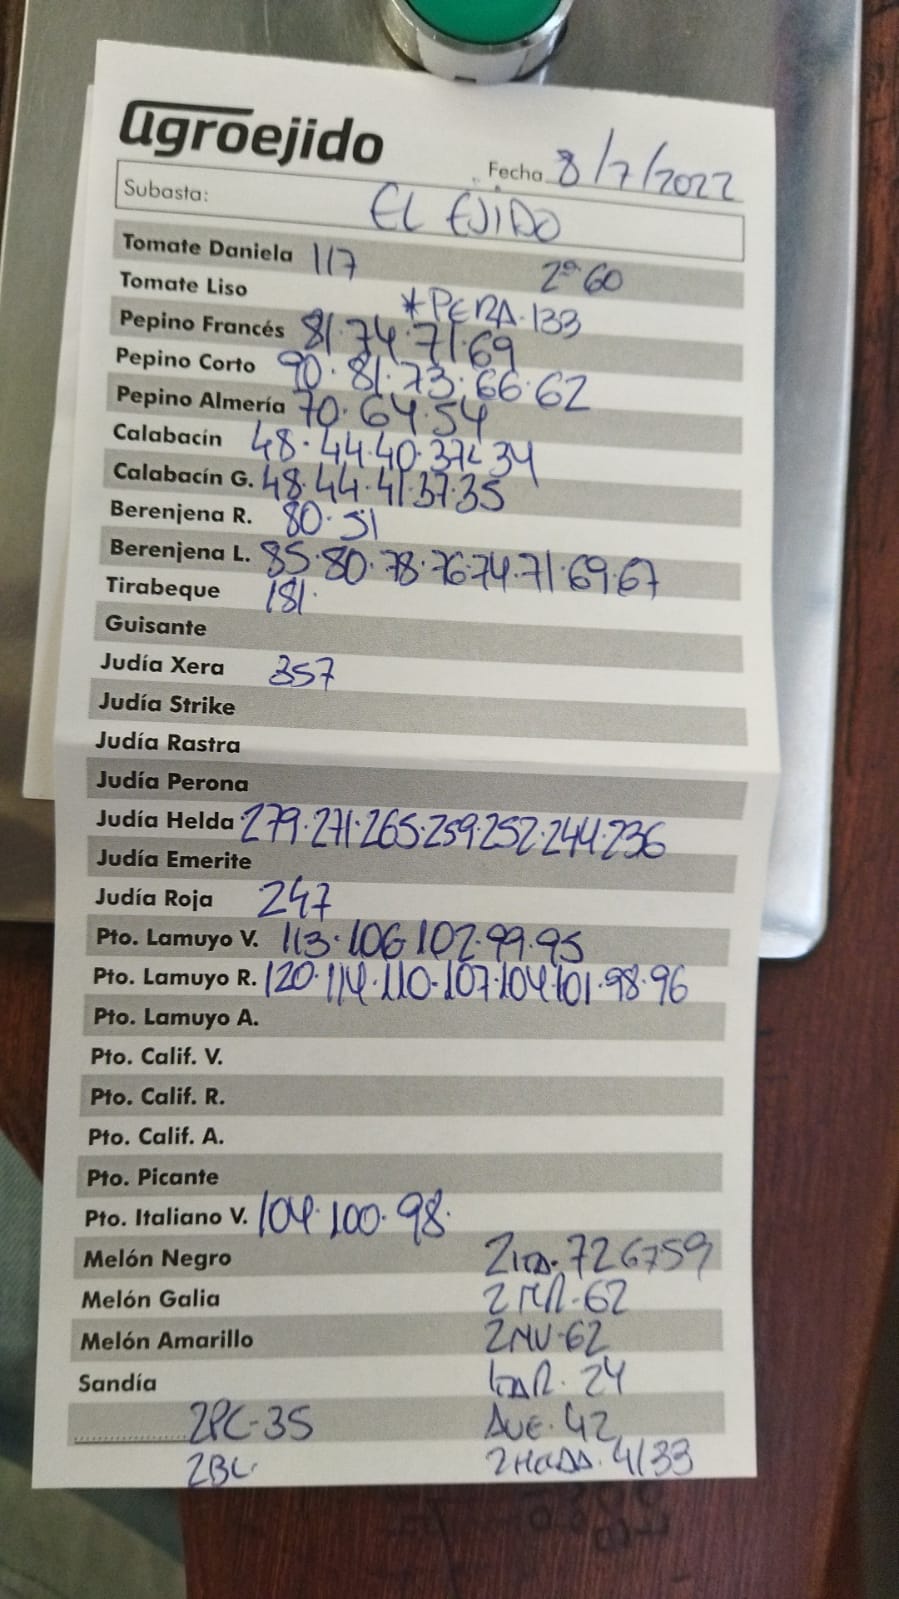 agroejido
Fecha 8/7/2022
Subasta: EL EJIDO
Tomate Daniela 117 2ª 60
Tomate Liso *PERA.133
Pepino Francés 81.74.71.69
Pepino Corto 90.81.73.66.62
Pepino Almería 70.64.54
Calabacín 48.44.40.37.34
Calabacín G. 48.44.41.37.35
Berenjena R. 80.51
Berenjena L. 85.80.78.76.74.71.69.67
Tirabeque 181.
Guisante
Judía Xera 357
Judía Strike
Judía Rastra
Judía Perona
Judía Helda 279.271.265.259.252.244.236
Judía Emerite
Judía Roja 247
Pto. Lamuyo V. 113.106.102.99.95
Pto. Lamuyo R. 120.114.110.107.104.101.98.96
Pto. Lamuyo A.
Pto. Calif. V.
Pto. Calif. R.
Pto. Calif. A.
Pto. Picante
Pto. Italiano V. 104.100.98.
Melón Negro 726759
Melón Galia 62
Melón Amarillo 62
Sandía 24
2PC-35 42
2BL. 4133